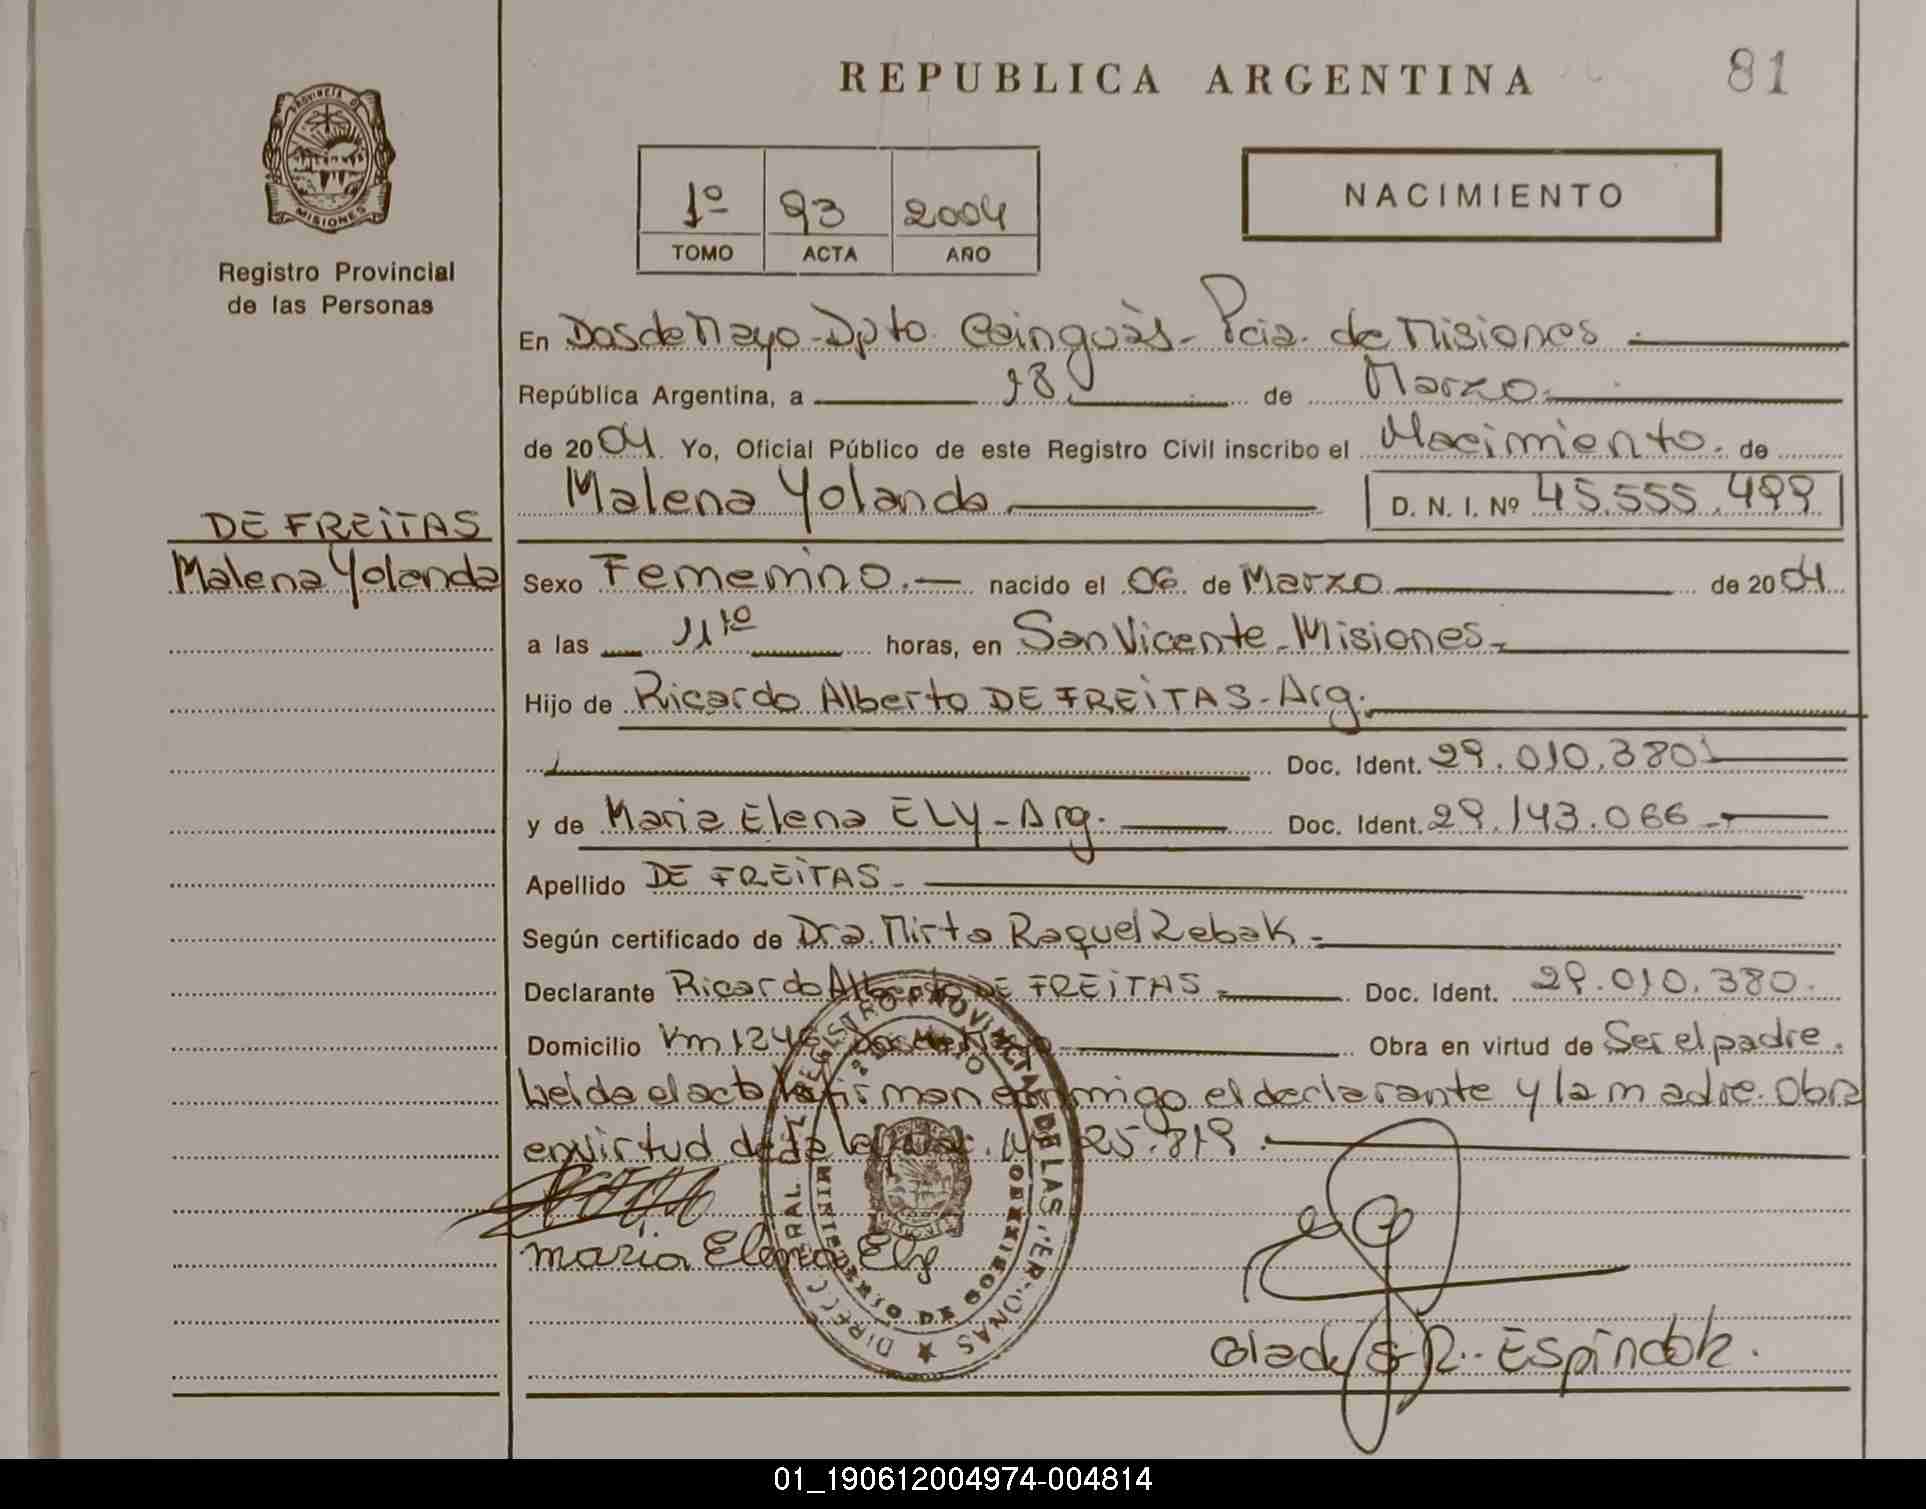 REPUBLICA ARGENTINA
81
PROVINCIA DE
MISIONES
Registro Provincial
de las Personas
1º 93 2004
TOMO ACTA AÑO
NACIMIENTO
En Dos de Mayo - Dpto. Cainguàs - Pcia. de Misiones
República Argentina, a 18 de Marzo
de 2004 Yo, Oficial Público de este Registro Civil inscribo el Nacimiento de
Malena Yolanda D. N. I. Nº 45.555.499
DE FREITAS
Malena Yolanda
Sexo Femenino.- nacido el 06 de Marzo de 2004
a las 11 10 horas, en San Vicente - Misiones -
Hijo de Ricardo Alberto DE FREITAS - Arg.
Doc. Ident. 29.010.380
y de Maria Elena ELY - Arg. Doc. Ident. 29.143.066 -
Apellido DE FREITAS -
Según certificado de Dra. Mirta Raquel Rebak -
Declarante Ricardo Alberto DE FREITAS - Doc. Ident. 29.010.380.
Domicilio Km 1246 Dos de Mayo Obra en virtud de Ser el padre.
Leida el acta la firman conmigo el declarante y la madre. Obra
en virtud de 25.819.
maria Elena Ely
DIRECC GRAL. REGISTRO PROVINCIAL DE LAS PERSONAS
MINISTERIO DE GOBIERNO
Gladys R. Espindola.
01_190612004974-004814